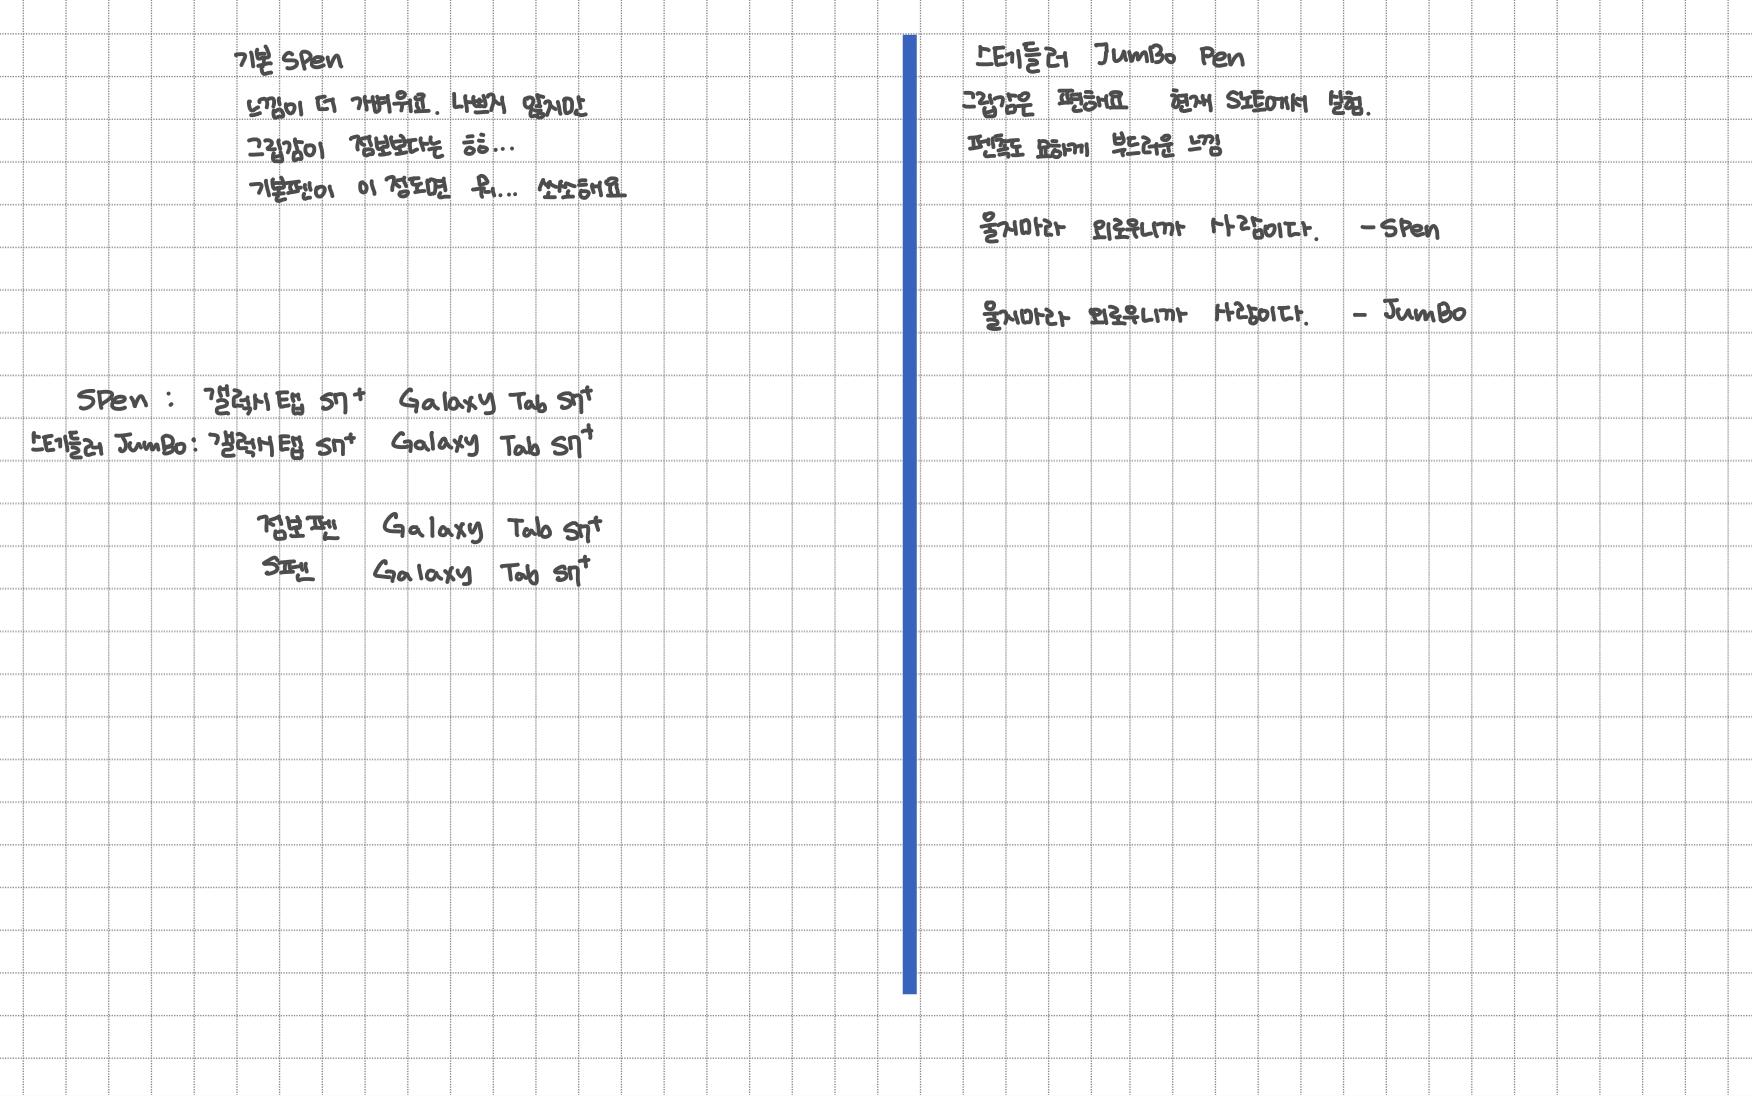 기본 SPen
느낌이 더 가벼워요. 나쁘지 않지만
그립감이 점보보다는 흠...
기본펜이 이 정도면 뭐... 쏘소해요
SPen : 갤럭시탭 S7+ Galaxy Tab S7+
스테들러 JumBo : 갤럭시탭 S7+ Galaxy Tab S7+
점보펜 Galaxy Tab S7+
S펜 Galaxy Tab S7+
스테들러 JumBo Pen
그립감은 편해요 현재 S노트에서 실험.
펜촉도 묘하게 부드러운 느낌
울지마라 외로우니까 사람이다. - SPen
울지마라 외로우니까 사람이다. - JumBo